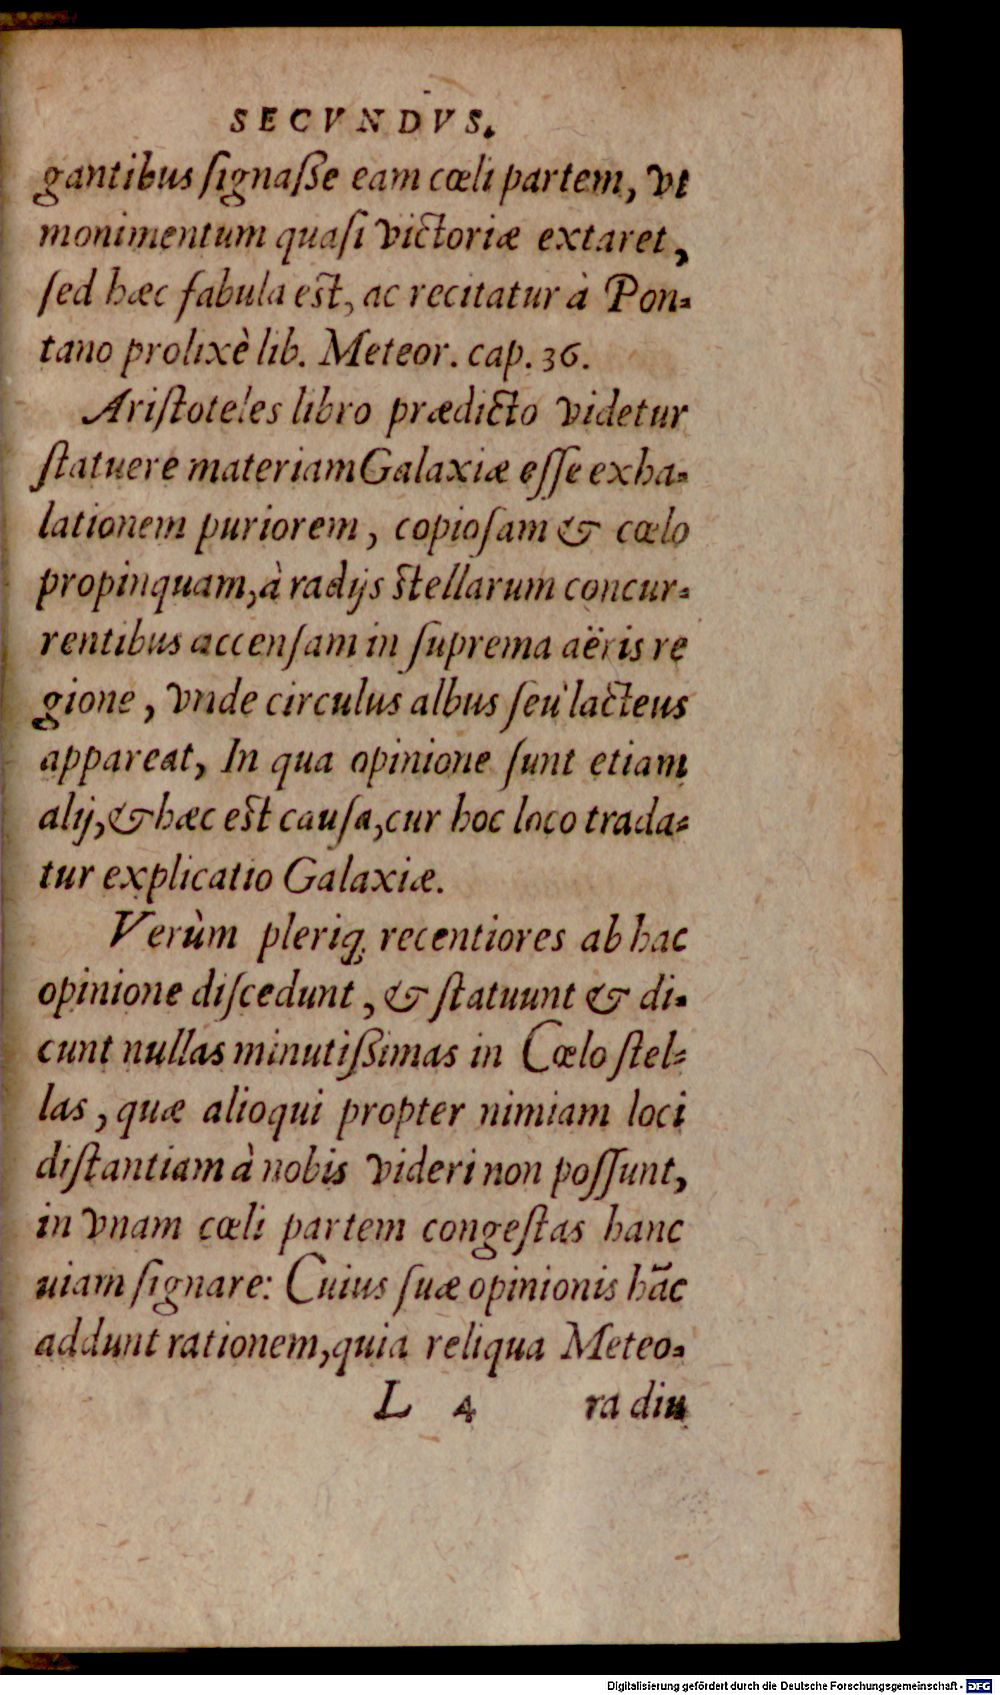 SECVNDVS.
gantibus ſignaſſe eam cœli partem, vt
monimentum quaſi victoriæ extaret,
ſed hæc fabula eſt, ac recitatur à Pon-
tano prolixè lib. Meteor. cap. 36.
Ariſtoteles libro prædicto videtur
ſtatuere materiam Galaxiæ eſſe exha-
lationem puriorem, copioſam & cœlo
propinquam, à radijs ſtellarum concur-
rentibus accenſam in ſuprema aëris re
gione, vnde circulus albus ſeu lacteus
appareat, In qua opinione ſunt etiam
alij, & hæc eſt cauſa, cur hoc loco trada-
tur explicatio Galaxiæ.
Verùm pleriq; recentiores ab hac
opinione diſcedunt, & ſtatuunt & di-
cunt nullas minutiſſimas in Cœlo ſtel-
las, quæ alioqui propter nimiam loci
diſtantiam à nobis videri non poſſunt,
in vnam cœli partem congeſtas hanc
uiam ſignare: Cuius ſuæ opinionis hāc
addunt rationem, quia reliqua Meteo-
L 4 ra diu
Digitalisierung gefördert durch die Deutsche Forschungsgemeinschaft - DFG